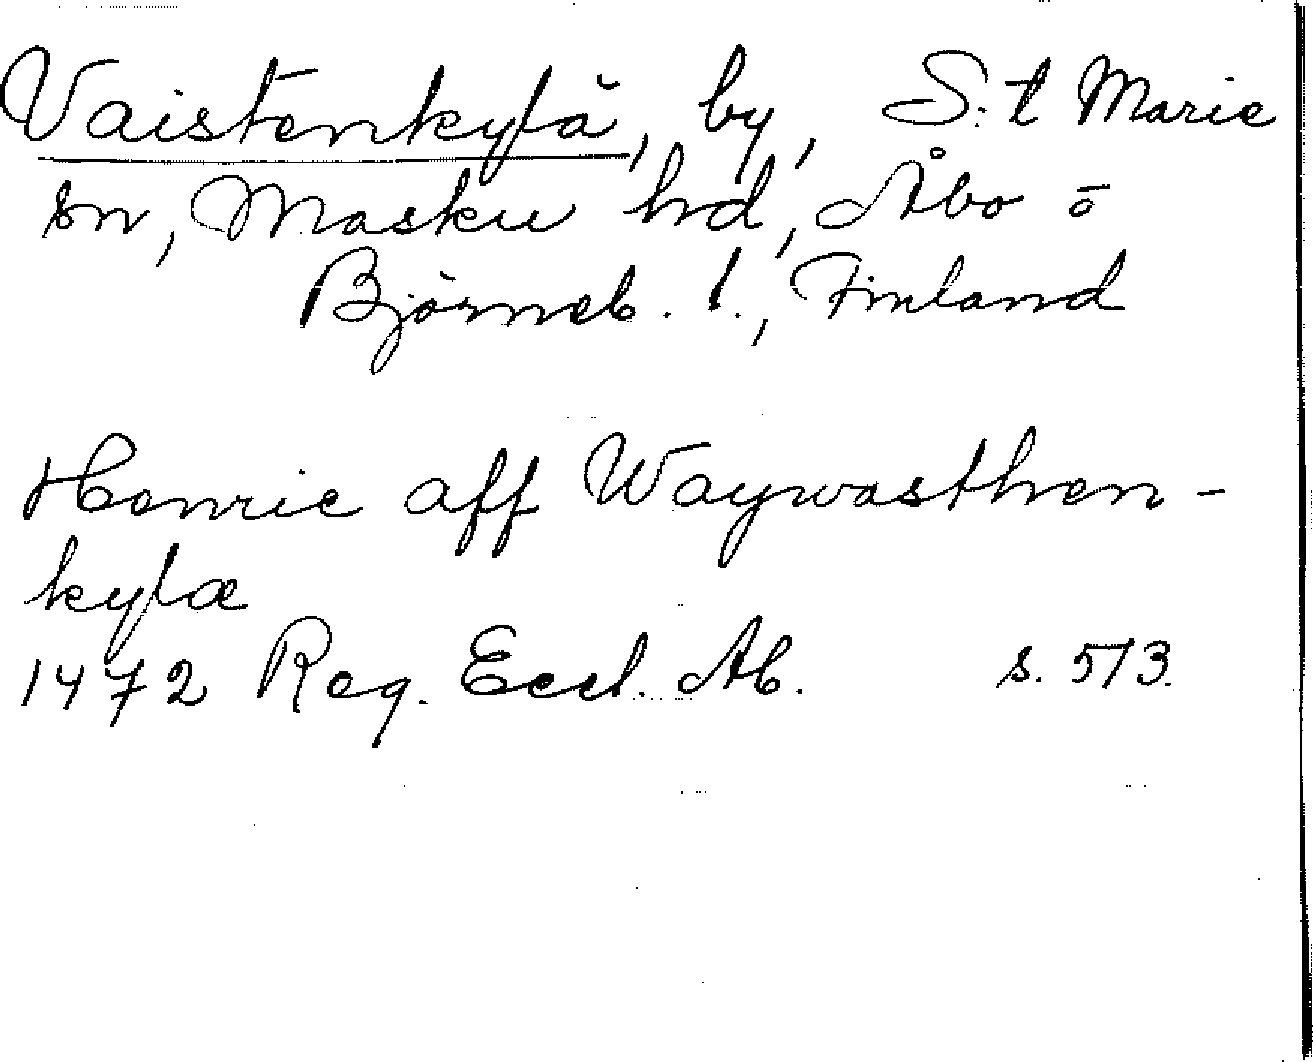 Vaistenkylä, by, S:t Marie
sn, Masku hd, Åbo o
Björneb. l., Finland
Henric aff Waywasthen-
kylæ
1472 Reg. Eccl. Ab. s. 573.